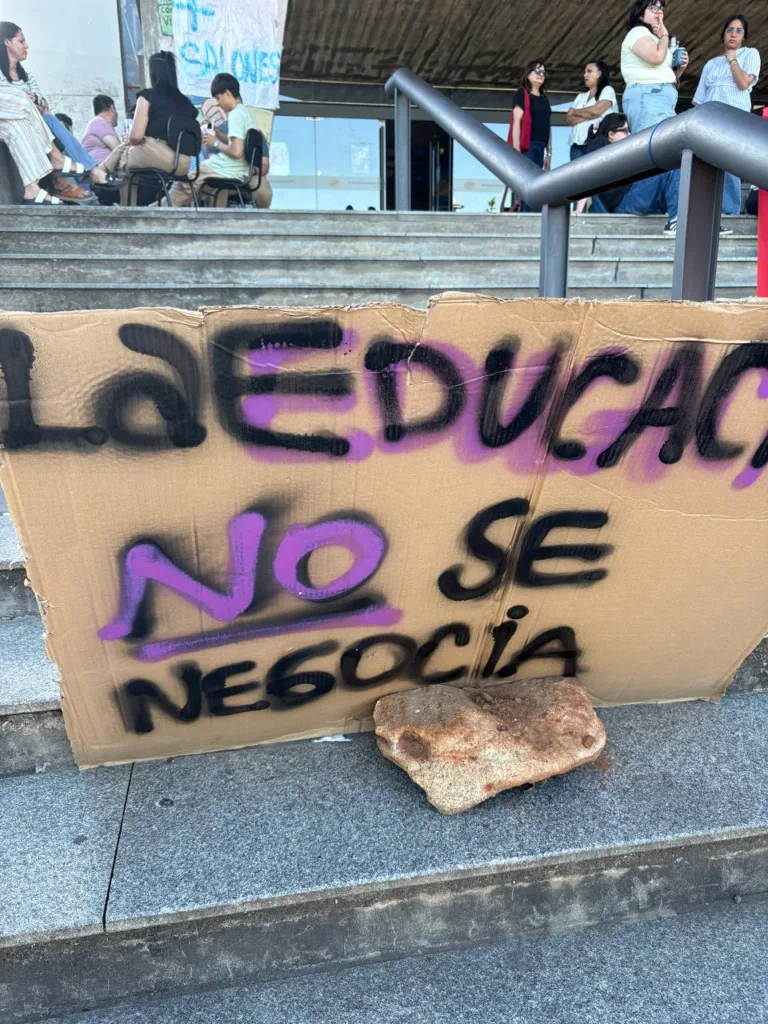 +
SALONES
La EDUCAC
NO SE
NEGOCiA